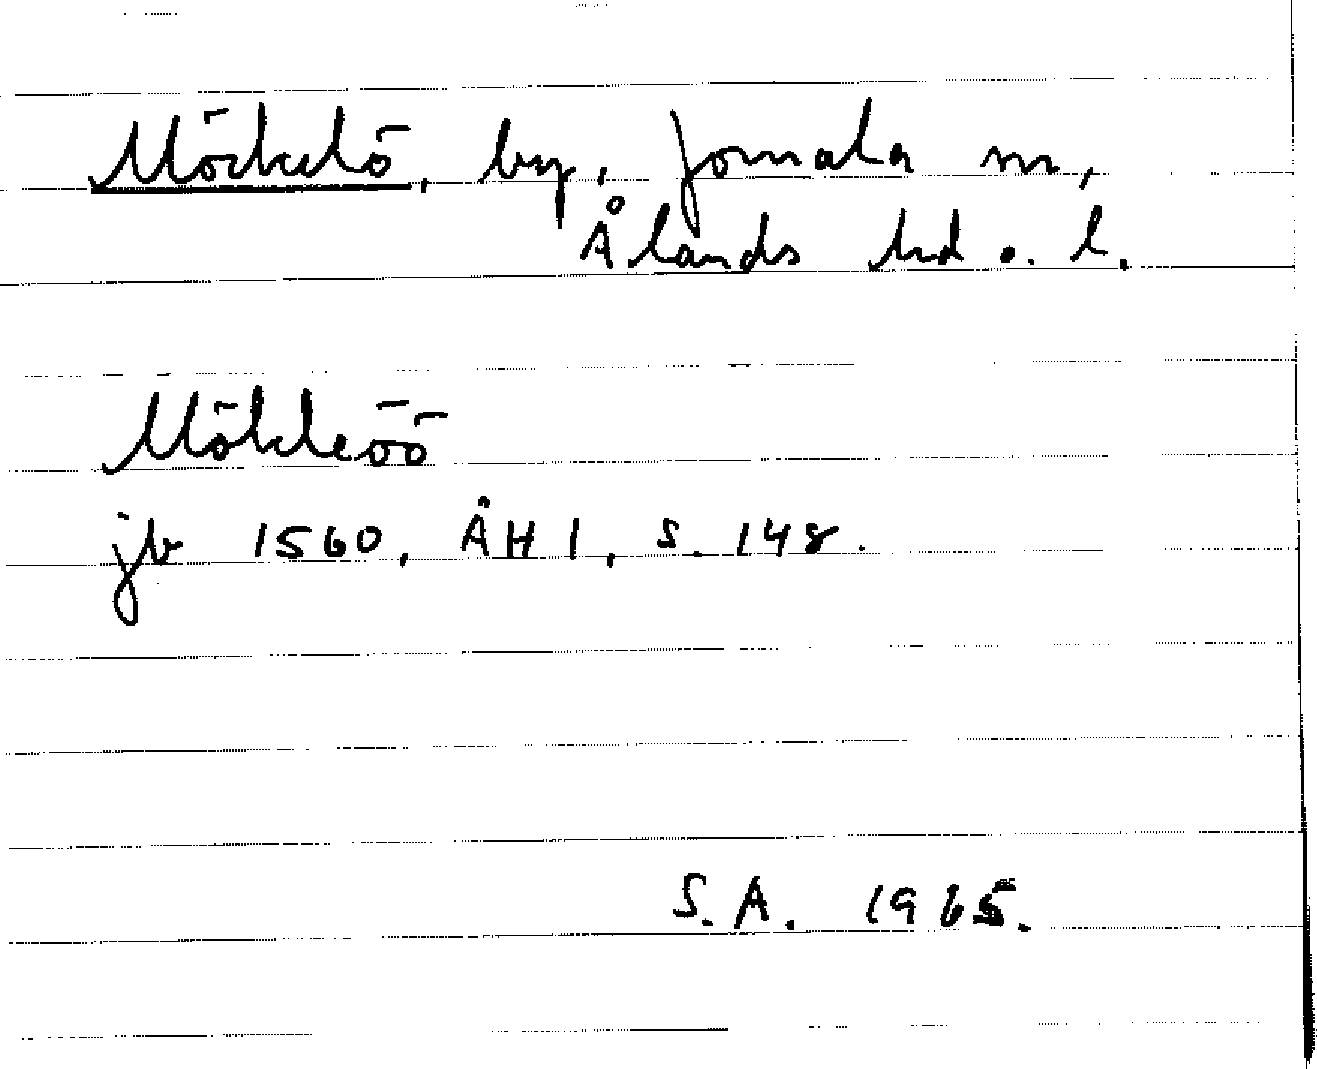 Möckelö, by, Jomala sn,
Ålands hd o. l.
Mökleöö
jb 1560, ÅHI, s. 148.
S.A. 1965.